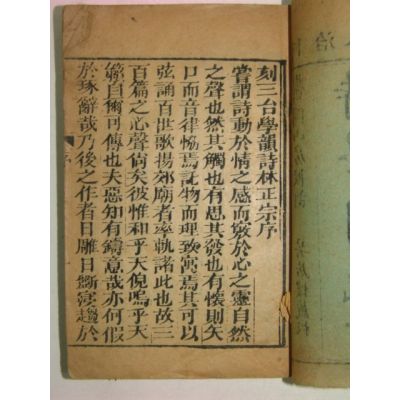 刻三台學韻詩林正宗序
嘗謂詩動於情之感而竅於心之靈自然
之聲也然其觸也有思其發也有懷則矢
口而音律恊焉託物而理致寓焉其可以
弦誦百世歌揚郊廟者率軌諸此也故三
百篇之心聲尚矣彼惟和乎天倪鳴乎天
籟自爾可傳也夫惡知有鑄意哉亦何假
於琢辭哉乃後之作者日雕日斲寖趨於
序
治